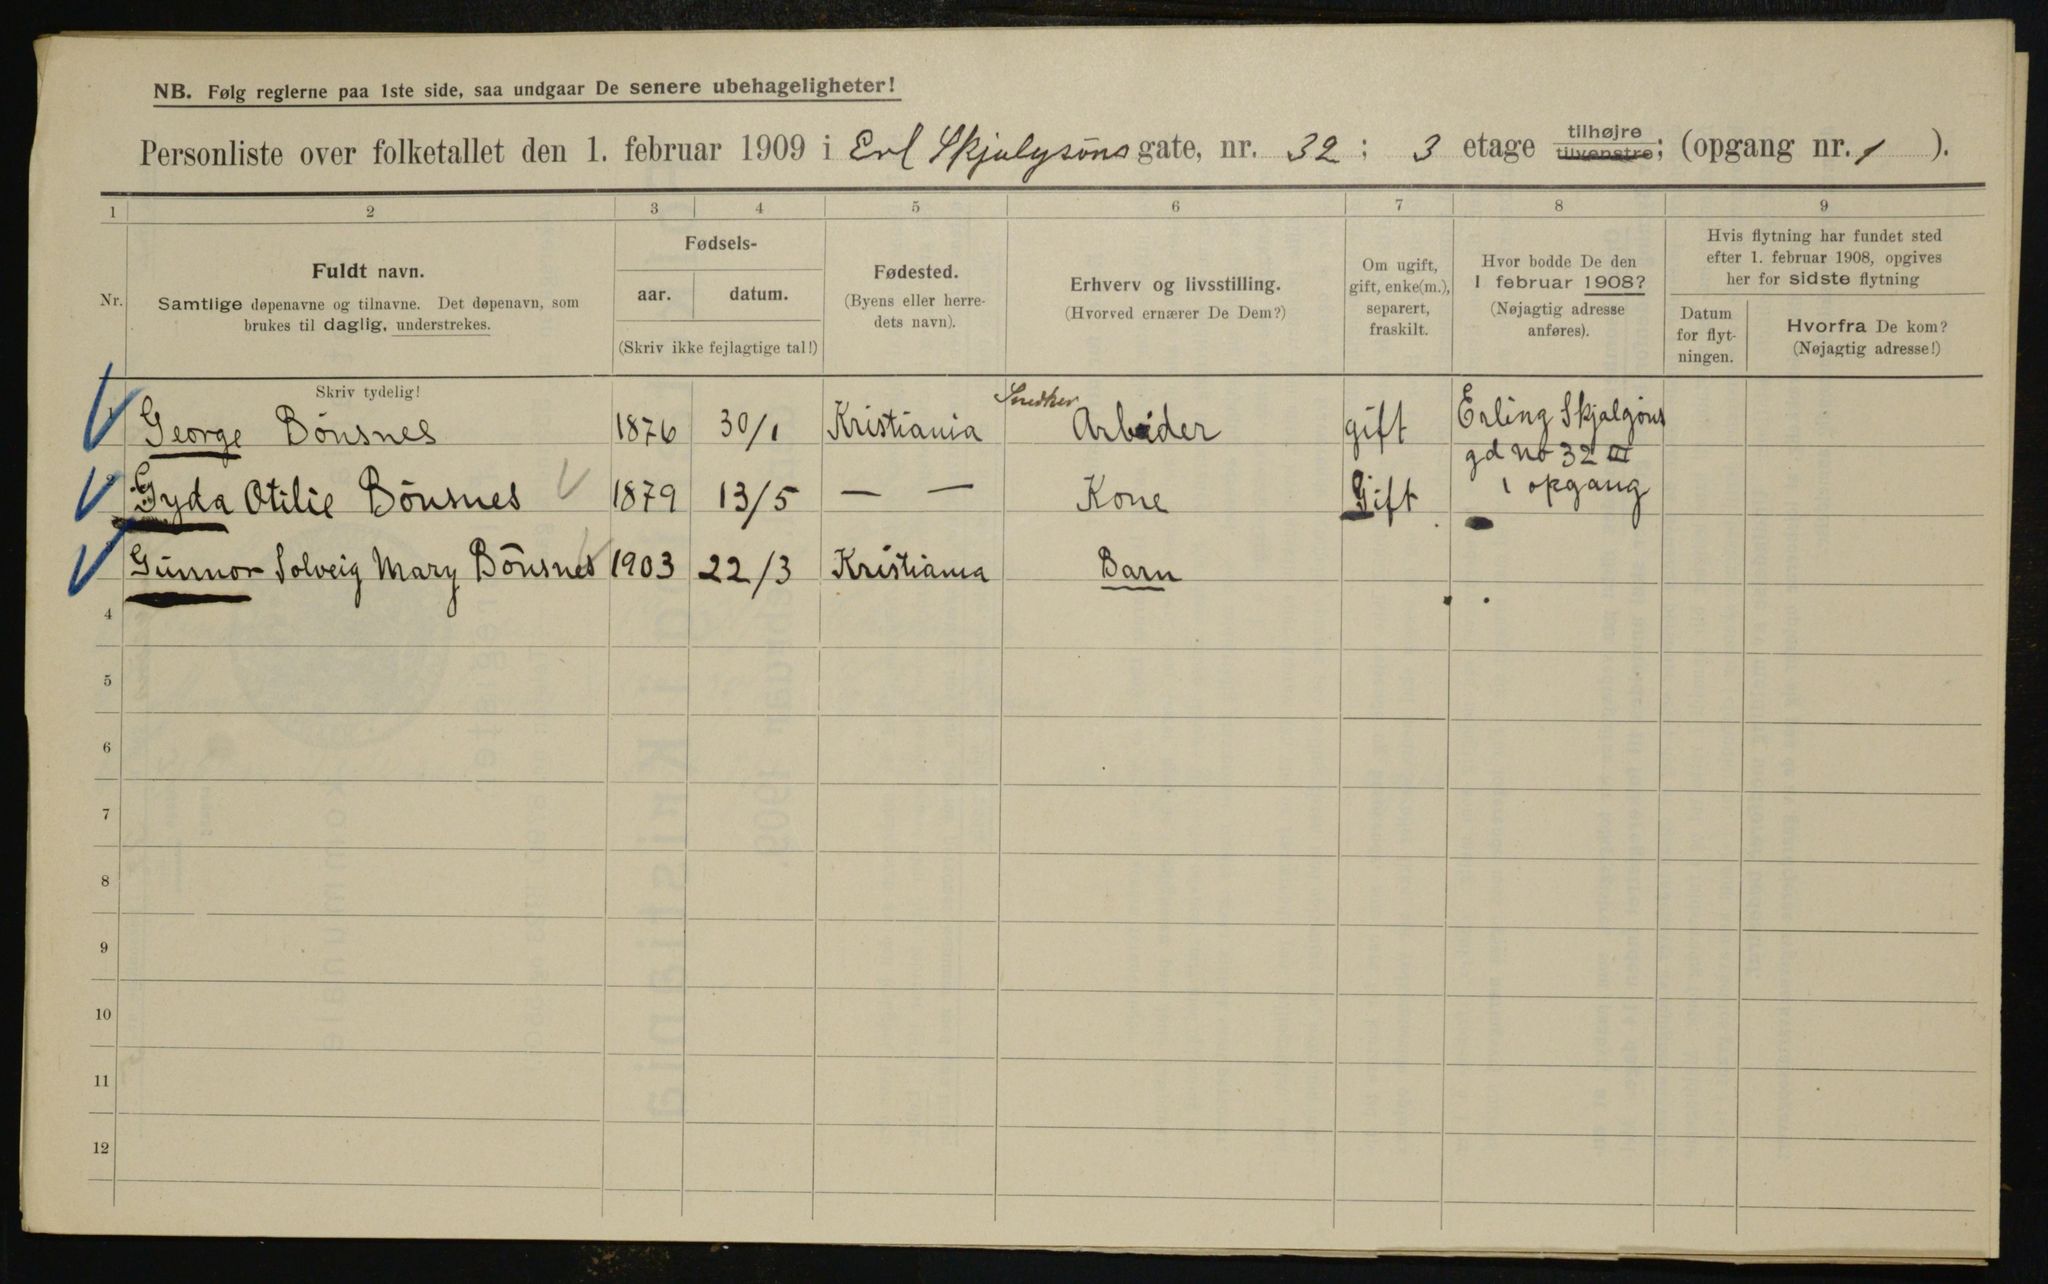 NB. Følg reglerne paa 1ste side, saa undgaar De senere ubehageligheter!
Personliste over folketallet den 1. februar 1909 i Erl Skjalgsöns gate, nr. 32 ; 3 etage tilhøjre tilvenstre; (opgang nr. 1 ).
1 2 3 4 5 6 7 8 9
Nr.
Fuldt navn.
Samtlige døpenavne og tilnavne. Det døpenavn, som
brukes til daglig, understrekes.
Fødsels-
aar. datum.
(Skriv ikke fejlagtige tal!)
Fødested.
(Byens eller herre-
dets navn).
Erhverv og livsstilling.
(Hvorved ernærer De Dem?)
Om ugift,
gift, enke(m.),
separert,
fraskilt.
Hvor bodde De den
1 februar 1908?
(Nøjagtig adresse
anføres).
Hvis flytning har fundet sted
efter 1. februar 1908, opgives
her for sidste flytning
Datum
for flyt-
ningen.
Hvorfra De kom?
(Nøjagtig adresse!)
Skriv tydelig!
George Bönsnes 1876 30/1 Kristiania Snedker Arbeider gift Erling Skjalgöns
gd no 32 III
Gyda Otilie Bönsnes 1879 13/5 — — Kone Gift 1 opgang
Gunnor Solveig Mary Bönsnes 1903 22/3 Kristiania Barn
4
5
6
7
8
9
10
11
12